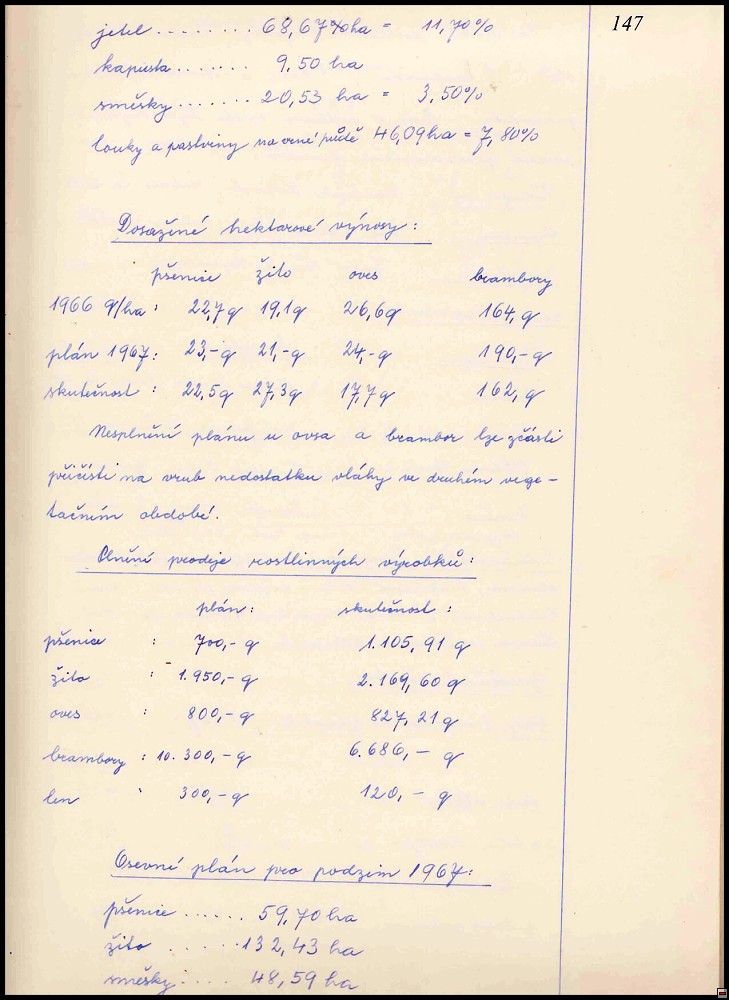 147
jetel ........ 68,67 ha = 11,70%
kapusta ....... 9,50 ha
směsky ....... 20,53 ha = 3,50%
louky a pastviny na orné půdě 46,09 ha = 7,80%
Dosažené hektarové výnosy:
pšenice žito oves brambory
1966 q/ha : 22,7q 19,1q 26,6q 164,q
plán 1967: 23,-q 21,-q 24,-q 190,-q
skutečnost : 22,5q 27,3q 17,7q 162,q
Nesplnění plánu u ovsa a brambor lze zčásti
přičísti na vrub nedostatku vláhy ve druhém vege-
tačním období.
Plnění prodeje rostlinných výrobků:
plán: skutečnost :
pšenice : 700,- q 1.105,91 q
žito : 1.950,- q 2.169,60 q
oves : 800,- q 827,21 q
brambory : 10.300,- q 6.686,- q
len : 300,- q 120,- q
Osevní plán pro podzim 1967:
pšenice ...... 59,70 ha
žito ...... 132,43 ha
směsky ..... 48,59 ha